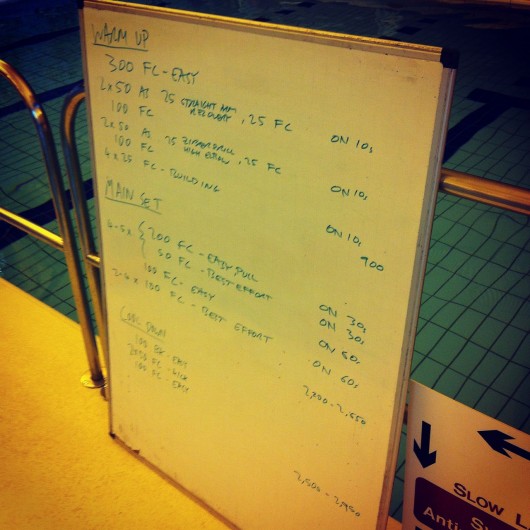 WARM UP
300 FC - EASY
2x50 AS 25 STRAIGHT ARM RECOVERY, 25 FC ON 10s
100 FC
2x50 AS 25 ZIPPER DRILL HIGH ELBOW, 25 FC ON 10s
100 FC
4x25 FC - BUILDING ON 10s
900
MAIN SET
4-5x { 200 FC - EASY PULL ON 30s
50 FC - BEST EFFORT ON 30s
100 FC - EASY ON 60s
2-4 x 100 FC - BEST EFFORT ON 60s
2,200 - 2,650
COOL DOWN
100 EASY
2x50 FC - KICK
100 FC - EASY
2,500 - 2,950
SLOW L
Anti